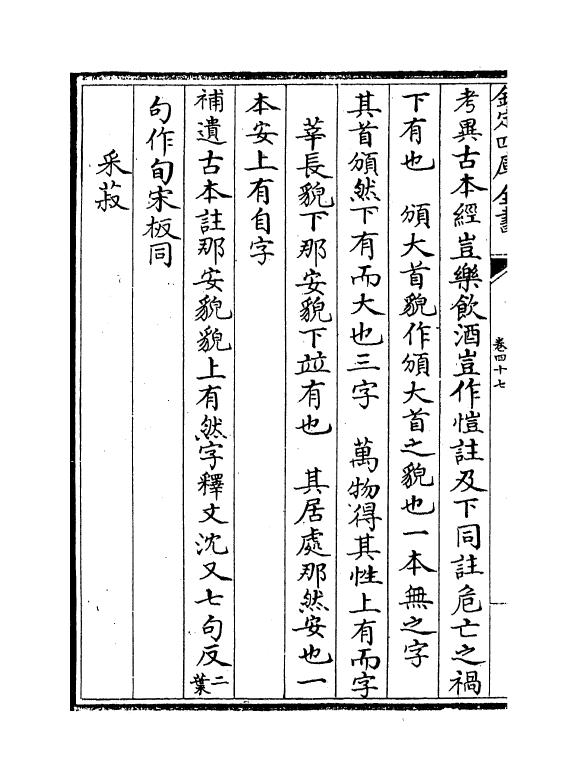 欽定四庫全書
卷四十七
考異古本經豈樂飲酒豈作愷註及下同註危亡之禍
下有也　頒大首貌作頒大首之貌也一本無之字
其首頒然下有而大也三字　萬物得其性上有而字
莘長貌下那安貌下竝有也　其居處那然安也一
本安上有自字
補遺古本註那安貌貌上有然字釋文沈又七句反二葉
句作旬宋板同
采菽